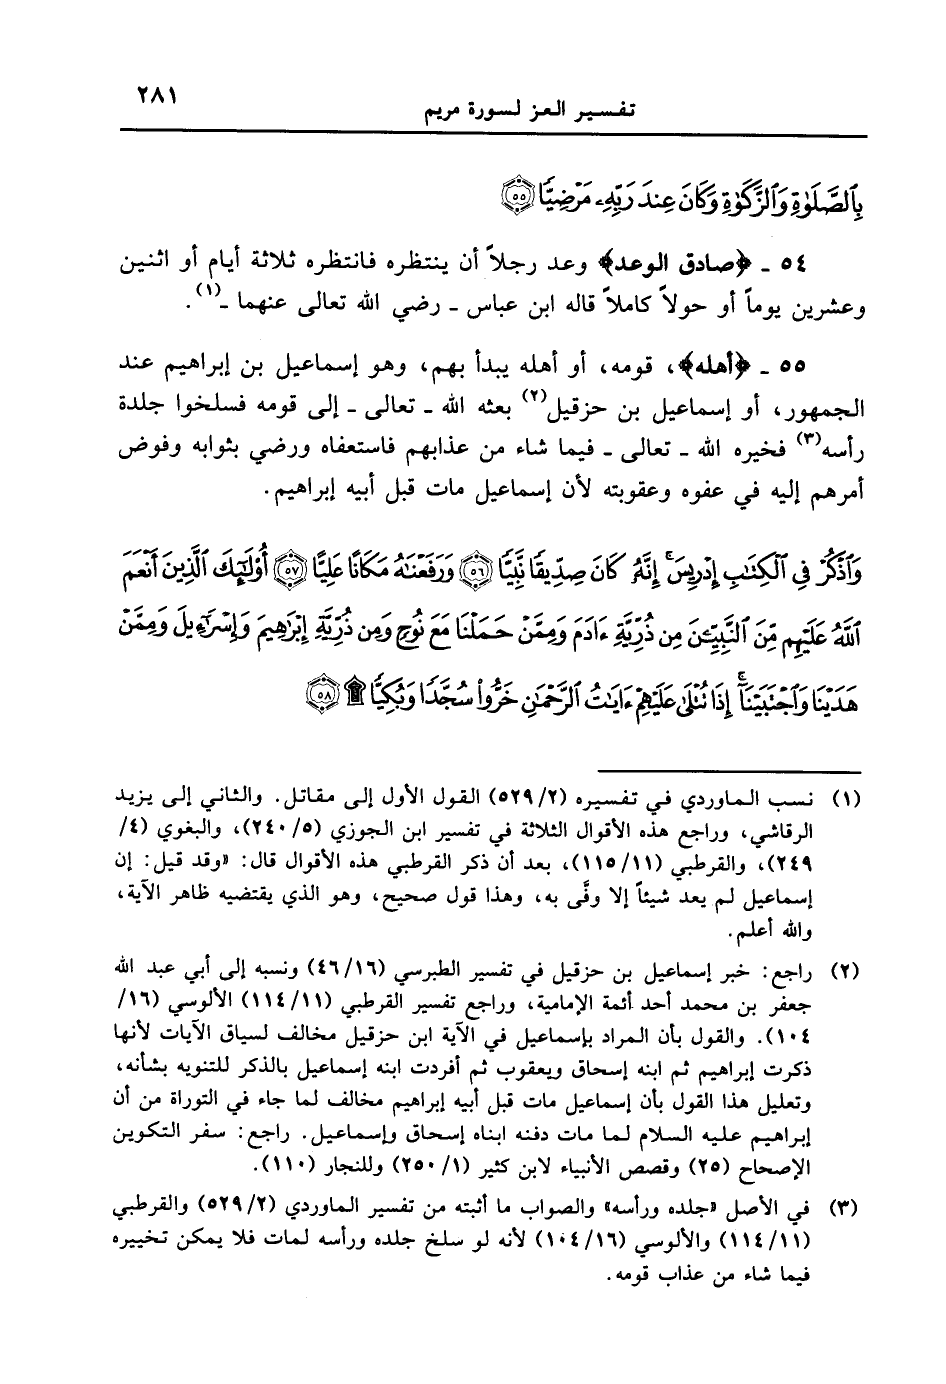 ٢٨١
تفسير العز لسورة مريم
بِٱلصَّلَوٰةِ وَٱلزَّكَوٰةِ وَكَانَ عِندَ رَبِّهِۦ مَرْضِيًّا ﴿٥٥﴾
٥٤ ـ ﴿صادق الوعد﴾ وعد رجلاً أن ينتظره فانتظره ثلاثة أيام أو اثنين
وعشرين يوماً أو حولاً كاملاً قاله ابن عباس ـ رضي الله تعالى عنهما ـ(١).
٥٥ ـ ﴿أهله﴾، قومه، أو أهله يبدأ بهم، وهو إسماعيل بن إبراهيم عند
الجمهور، أو إسماعيل بن حزقيل(٢) بعثه الله ـ تعالى ـ إلى قومه فسلخوا جلدة
رأسه(٣) فخيره الله ـ تعالى ـ فيما شاء من عذابهم فاستعفاه ورضي بثوابه وفوض
أمرهم إليه في عفوه وعقوبته لأن إسماعيل مات قبل أبيه إبراهيم.
وَٱذْكُرْ فِى ٱلْكِتَٰبِ إِدْرِيسَ ۚ إِنَّهُۥ كَانَ صِدِّيقًا نَّبِيًّا ﴿٥٦﴾ وَرَفَعْنَٰهُ مَكَانًا عَلِيًّا ﴿٥٧﴾ أُو۟لَٰٓئِكَ ٱلَّذِينَ أَنْعَمَ
ٱللَّهُ عَلَيْهِم مِّنَ ٱلنَّبِيِّـۧنَ مِن ذُرِّيَّةِ ءَادَمَ وَمِمَّنْ حَمَلْنَا مَعَ نُوحٍ وَمِن ذُرِّيَّةِ إِبْرَٰهِيمَ وَإِسْرَٰٓءِيلَ وَمِمَّنْ
هَدَيْنَا وَٱجْتَبَيْنَآ ۚ إِذَا تُتْلَىٰ عَلَيْهِمْ ءَايَٰتُ ٱلرَّحْمَٰنِ خَرُّوا۟ سُجَّدًا وَبُكِيًّا ۩ ﴿٥٨﴾
(١) نسب الماوردي في تفسيره (٥٢٩/٢) القول الأول إلى مقاتل. والثاني إلى يزيد
الرقاشي، وراجع هذه الأقوال الثلاثة في تفسير ابن الجوزي (٢٤٠/٥)، والبغوي (٤/
٢٤٩)، والقرطبي (١١٥/١١)، بعد أن ذكر القرطبي هذه الأقوال قال: «وقد قيل: إن
إسماعيل لم يعد شيئاً إلا وفَّى به، وهذا قول صحيح، وهو الذي يقتضيه ظاهر الآية،
والله أعلم.
(٢) راجع: خبر إسماعيل بن حزقيل في تفسير الطبرسي (٤٦/١٦) ونسبه إلى أبي عبد الله
جعفر بن محمد أحد أئمة الإمامية، وراجع تفسير القرطبي (١١٤/١١) الألوسي (١٦/
١٠٤). والقول بأن المراد بإسماعيل في الآية ابن حزقيل مخالف لسياق الآيات لأنها
ذكرت إبراهيم ثم ابنه إسحاق ويعقوب ثم أفردت ابنه إسماعيل بالذكر للتنويه بشأنه،
وتعليل هذا القول بأن إسماعيل مات قبل أبيه إبراهيم مخالف لما جاء في التوراة من أن
إبراهيم عليه السلام لما مات دفنه ابناه إسحاق وإسماعيل. راجع: سفر التكوين
الإصحاح (٢٥) وقصص الأنبياء لابن كثير (٢٥٠/١) وللنجار (١١٠).
(٣) في الأصل «جلده ورأسه» والصواب ما أثبته من تفسير الماوردي (٥٢٩/٢) والقرطبي
(١١٤/١١) والألوسي (١٠٤/١٦) لأنه لو سلخ جلده ورأسه لمات فلا يمكن تخييره
فيما شاء من عذاب قومه.